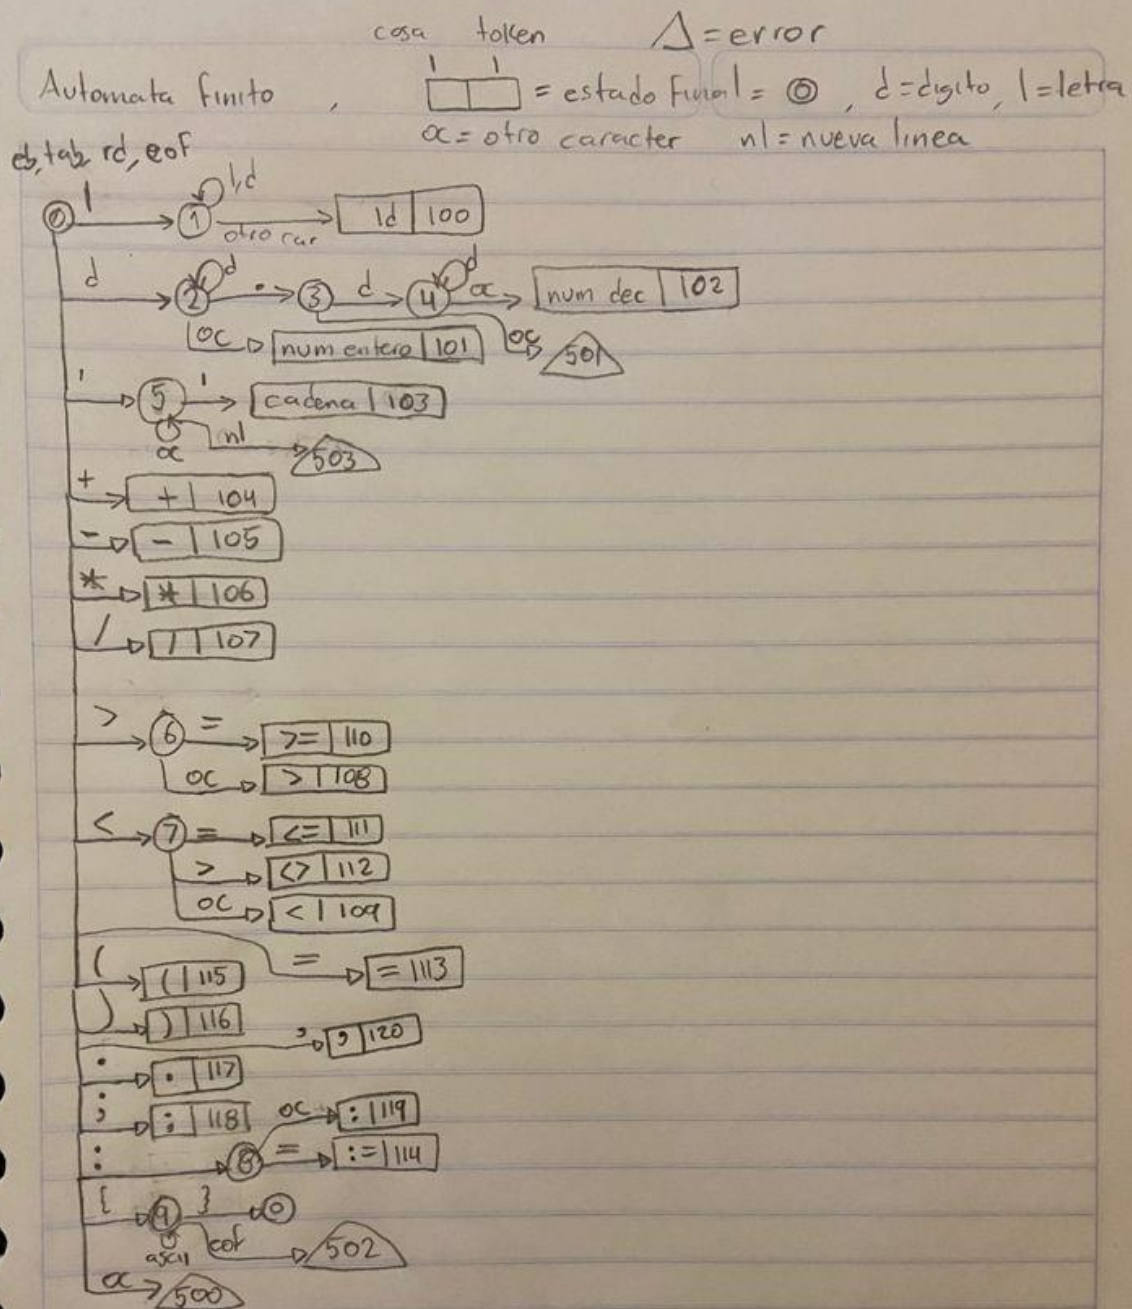 cosa token Δ=error
Automata finito , = estado Final = ◎ , d=digito, l=letra
oc = otro caracter nl = nueva linea
eb, tab, rd, eof
l 1 l,d otro car Id 100
d 2 d . 3 d 4 d oc num dec 102
oc num entero 101 oc 501
' 5 ' cadena 103
oc nl 503
+ + 104
- - 105
* * 106
/ / 107
> 6 = >= 110
oc > 108
< 7 = <= 111
> <> 112
oc < 109
( ( 115 = = 113
) ) 116
, , 120
. . 117
; ; 118 oc : 119
: 8 = := 114
{ 9 } 0
ascii eof 502
oc 500